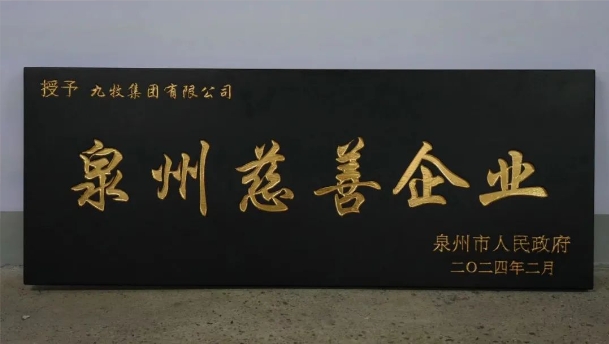 授予 九牧集团有限公司
泉州慈善企业
泉州市人民政府
二〇二四年二月